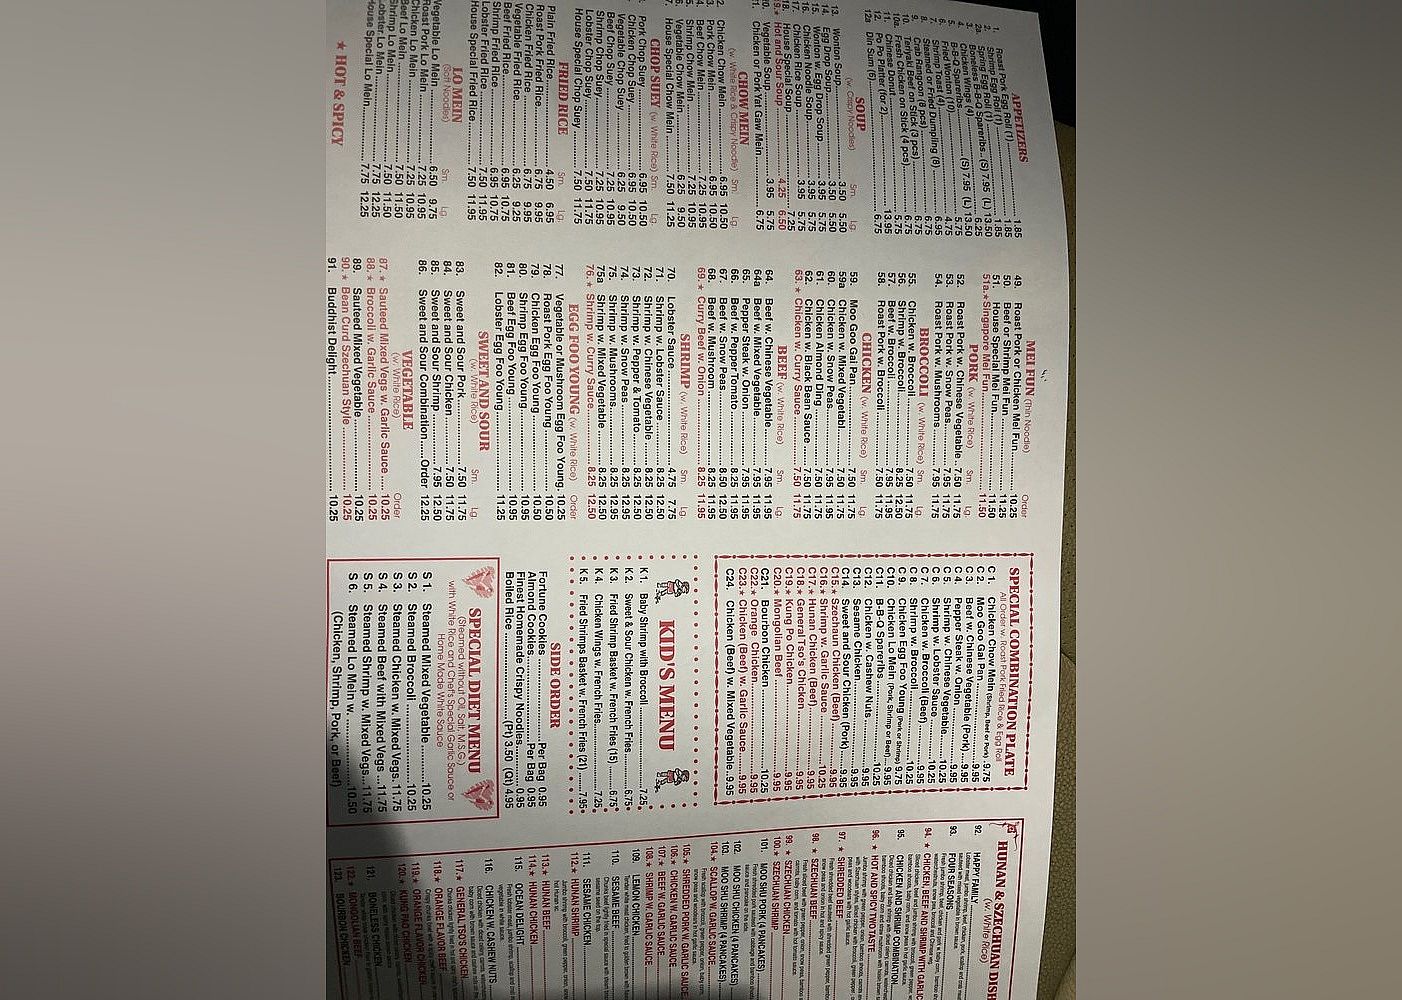 APPETIZERS
1. Roast Pork Egg Roll (1) 1.85
2. Shrimp Egg Roll (1) 1.85
2a. Spring Egg Roll (1) 1.85
3. Boneless B-B-Q Spareribs (S) 7.95 (L) 13.50
4. Chicken Wings (4) 6.25
5. B-B-Q Spareribs (S) 7.95 (L) 13.50
6. Fried Wonton (10) 5.75
7. Shrimp Toast (4) 4.75
8. Steamed or Fried Dumpling (8) 6.95
9. Crab Rangoon (8 pcs) 6.75
10. Teriyaki Beef on Stick (3 pcs) 6.75
10a. Fresh Chicken on Stick (4 pcs) 6.75
11. Chinese Donut 5.75
12. Po Po Platter (for 2) 13.95
12a. Dim Sum (6) 6.75
SOUP
(w. Crispy Noodles) Sm. Lg.
13. Wonton Soup 3.50 5.50
14. Egg Drop Soup 3.50 5.50
15. Wonton w. Egg Drop Soup 3.95 5.75
16. Chicken Noodle Soup 3.95 5.75
17. Chicken Rice Soup 3.95 5.75
18. House Special Soup 7.25
19.★ Hot and Sour Soup 4.25 6.50
Vegetable Soup 3.95 5.75
Chicken or Pork Yat Gaw Mein 6.75
CHOW MEIN
(w. White Rice & Crispy Noodle) Sm. Lg.
Chicken Chow Mein 6.95 10.50
Pork Chow Mein 6.95 10.50
Beef Chow Mein 7.25 10.95
Shrimp Chow Mein 7.25 10.95
Vegetable Chow Mein 6.25 9.50
House Special Chow Mein 7.50 11.25
CHOP SUEY (w. White Rice) Sm. Lg.
Pork Chop Suey 6.95 10.50
Chicken Chop Suey 6.95 10.50
Vegetable Chop Suey 6.25 9.50
Beef Chop Suey 7.25 10.95
Shrimp Chop Suey 7.25 10.95
Lobster Chop Suey 7.50 11.75
House Special Chop Suey 7.50 11.75
FRIED RICE Sm. Lg.
Plain Fried Rice 4.50 6.95
Roast Pork Fried Rice 6.75 9.95
Chicken Fried Rice 6.75 9.95
Vegetable Fried Rice 6.25 9.25
Beef Fried Rice 6.95 10.75
Shrimp Fried Rice 6.95 10.75
Lobster Fried Rice 7.50 11.95
House Special Fried Rice 7.50 11.95
LO MEIN
(Soft Noodles) Sm. Lg.
Vegetable Lo Mein 6.50 9.75
Roast Pork Lo Mein 7.25 10.95
Chicken Lo Mein 7.25 10.95
Beef Lo Mein 7.50 11.50
Shrimp Lo Mein 7.50 11.50
Lobster Lo Mein 7.75 12.25
House Special Lo Mein 7.75 12.25
★ HOT & SPICY
MEI FUN (Thin Noodle) Order
49. Roast Pork or Chicken Mei Fun 10.25
50. Beef or Shrimp Mei Fun 11.25
51. House Special Mei Fun 11.50
51a.★ Singapore Mei Fun 11.50
PORK (w. White Rice) Sm. Lg.
52. Roast Pork w. Chinese Vegetable 7.50 11.75
53. Roast Pork w. Snow Peas 7.95 11.75
54. Roast Pork w. Mushrooms 7.95 11.75
BROCCOLI (w. White Rice) Sm. Lg.
55. Chicken w. Broccoli 7.50 11.75
56. Shrimp w. Broccoli 8.25 12.50
57. Beef w. Broccoli 7.95 11.95
58. Roast Pork w. Broccoli 7.50 11.75
CHICKEN (w. White Rice) Sm. Lg.
59. Moo Goo Gai Pan 7.50 11.75
59a. Chicken w. Mixed Vegetabl 7.50 11.75
60. Chicken w. Snow Peas 7.95 11.75
61. Chicken Almond Ding 7.50 11.75
62. Chicken w. Black Bean Sauce 7.50 11.75
63.★ Chicken w. Curry Sauce 7.50 11.75
BEEF (w. White Rice) Sm. Lg.
64. Beef w. Chinese Vegetable 7.95 11.95
64a. Beef w. Mixed Vegetable 7.95 11.95
65. Pepper Steak w. Onion 7.95 11.95
66. Beef w. Pepper Tomato 8.25 11.95
67. Beef w. Snow Peas 8.50 12.50
68. Beef w. Mushroom 8.25 11.95
69.★ Curry Beef w. Onion 8.25 11.95
SHRIMP (w. White Rice) Sm. Lg.
70. Lobster Sauce 4.75 7.75
71. Shrimp w. Lobster Sauce 8.25 12.50
72. Shrimp w. Chinese Vegetable 8.25 12.50
73. Shrimp w. Pepper & Tomato 8.25 12.50
74. Shrimp w. Snow Peas 8.25 12.95
75. Shrimp w. Mushrooms 8.25 12.95
75a. Shrimp w. Mixed Vegetable 8.25 12.50
76.★ Shrimp w. Curry Sauce 8.25 12.50
EGG FOO YOUNG (w. White Rice) Order
77. Vegetable or Mushroom Egg Foo Young 10.25
78. Roast Pork Egg Foo Young 10.50
79. Chicken Egg Foo Young 10.50
80. Shrimp Egg Foo Young 10.95
81. Beef Egg Foo Young 10.95
82. Lobster Egg Foo Young 11.25
SWEET AND SOUR
(w. White Rice) Sm. Lg.
83. Sweet and Sour Pork 7.50 11.75
84. Sweet and Sour Chicken 7.50 11.75
85. Sweet and Sour Shrimp 7.95 12.50
86. Sweet and Sour Combination Order 12.25
VEGETABLE
(w. White Rice) Order
87.★ Sauteed Mixed Vegs w. Garlic Sauce 10.25
88.★ Broccoli w. Garlic Sauce 10.25
89. Sauteed Mixed Vegetable 10.25
90.★ Bean Curd Szechuan Style 10.25
91. Buddhist Delight 10.25
SPECIAL COMBINATION PLATE
All Order w. Roast Pork Fried Rice & Egg Roll
C 1. Chicken Chow Mein (Shrimp, Beef or Pork) 9.75
C 2. Moo Goo Gai Pan 9.95
C 3. Beef w. Chinese Vegetable (Pork) 9.95
C 4. Pepper Steak w. Onion 9.95
C 5. Shrimp w. Chinese Vegetable 10.25
C 6. Shrimp w. Lobster Sauce 10.25
C 7. Chicken w. Broccoli (Beef) 9.95
C 8. Shrimp w. Broccoli 10.25
C 9. Chicken Egg Foo Young (Pork or Shrimp) 9.75
C10. Chicken Lo Mein (Pork, Shrimp or Beef) 9.95
C11. B-B-Q Spareribs 10.25
C12. Chicken w. Cashew Nuts 9.95
C13. Sesame Chicken 9.95
C14. Sweet and Sour Chicken (Pork) 9.95
C15.★ Szechaun Chicken (Beef) 9.95
C16.★ Shrimp w. Garlic Sauce 10.25
C17.★ Hunan Chicken (Beef) 9.95
C18.★ General Tso's Chicken 9.95
C19.★ Kung Po Chicken 9.95
C20.★ Mongolian Beef 9.95
C21. Bourbon Chicken 10.25
C22.★ Orange Chicken 9.95
C23.★ Chicken (Beef) w. Garlic Sauce 9.95
C24. Chicken (Beef) w. Mixed Vegetable 9.95
KID'S MENU
K 1. Baby Shrimp with Broccoli 7.25
K 2. Sweet & Sour Chicken w. French Fries 6.75
K 3. Fried Shrimp Basket w. French Fries (15) 6.75
K 4. Chicken Wings w. French Fries 7.25
K 5. Fried Shrimps Basket w. French Fries (21) 7.95
SIDE ORDER
Fortune Cookies Per Bag 0.95
Almond Cookies Per Bag 0.95
Finest Homemade Crispy Noodles 0.95
Boiled Rice (Pt) 3.50 (Qt) 4.95
SPECIAL DIET MENU
(Steamed without Oil, Salt, M.S.G.,
with White Rice and Chef's Special Garlic Sauce or
Home Made White Sauce
S 1. Steamed Mixed Vegetable 10.25
S 2. Steamed Broccoli 10.25
S 3. Steamed Chicken w. Mixed Vegs. 11.75
S 4. Steamed Beef with Mixed Vegs 11.75
S 5. Steamed Shrimp w. Mixed Vegs 11.75
S 6. Steamed Lo Mein w. 10.50
(Chicken, Shrimp, Pork, or Beef)
HUNAN & SZECHUAN DISH
(w. White Rice)
92. HAPPY FAMILY
93. FOUR SEASONS
94.★ CHICKEN, BEEF AND SHRIMP WITH GARLIC
95. CHICKEN AND SHRIMP COMBINATION
96.★ HOT AND SPICY TWO TASTE
97.★ SHREDDED BEEF
98.★ SZECHUAN BEEF
99.★ SZECHUAN CHICKEN
100.★ SZECHUAN SHRIMP
101. MOO SHU PORK (4 PANCAKES)
102. MOO SHU CHICKEN (4 PANCAKES)
103. MOO SHU SHRIMP (4 PANCAKES)
104.★ SCALLOP W. GARLIC SAUCE
105.★ SHREDDED PORK W. GARLIC SAUCE
106.★ CHICKEN W. GARLIC SAUCE
107.★ BEEF W. GARLIC SAUCE
108.★ SHRIMP W. GARLIC SAUCE
109. LEMON CHICKEN
110. SESAME BEEF
111. SESAME CHICKEN
112.★ HUNAN SHRIMP
113.★ HUNAN BEEF
114.★ HUNAN CHICKEN
115. OCEAN DELIGHT
116. CHICKEN W. CASHEW NUTS
117.★ GENERAL TSO'S CHICKEN
118.★ ORANGE FLAVOR BEEF
119.★ ORANGE FLAVOR CHICKEN
120.★ KUNG PAO CHICKEN
121. BONELESS CHICKEN
122.★ MONGOLIAN BEEF
123. BOURBON CHICKEN